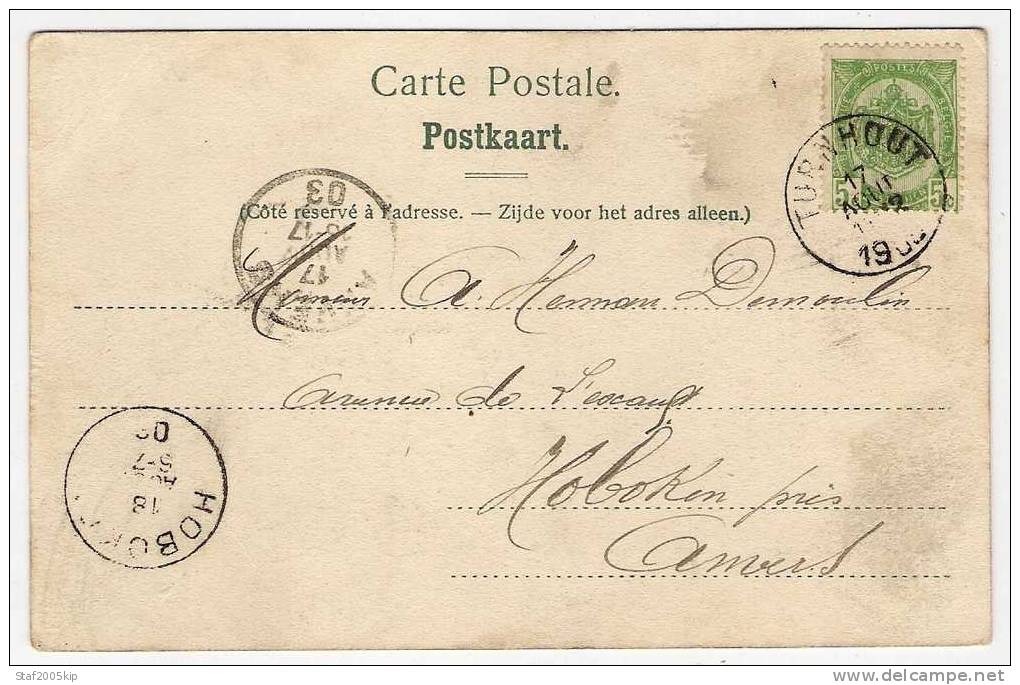 Carte Postale.
Postkaart.
(Côté réservé à l'adresse. — Zijde voor het adres alleen.)
POSTES
5 5
TURNHOUT
17
AOUT
03
17
Monsieur A. Herman Demoulin
Avenue de l'escaut
Hoboken près
Anvers
18
5-7
HOBOK
Staf2005kip
www.delcampe.net